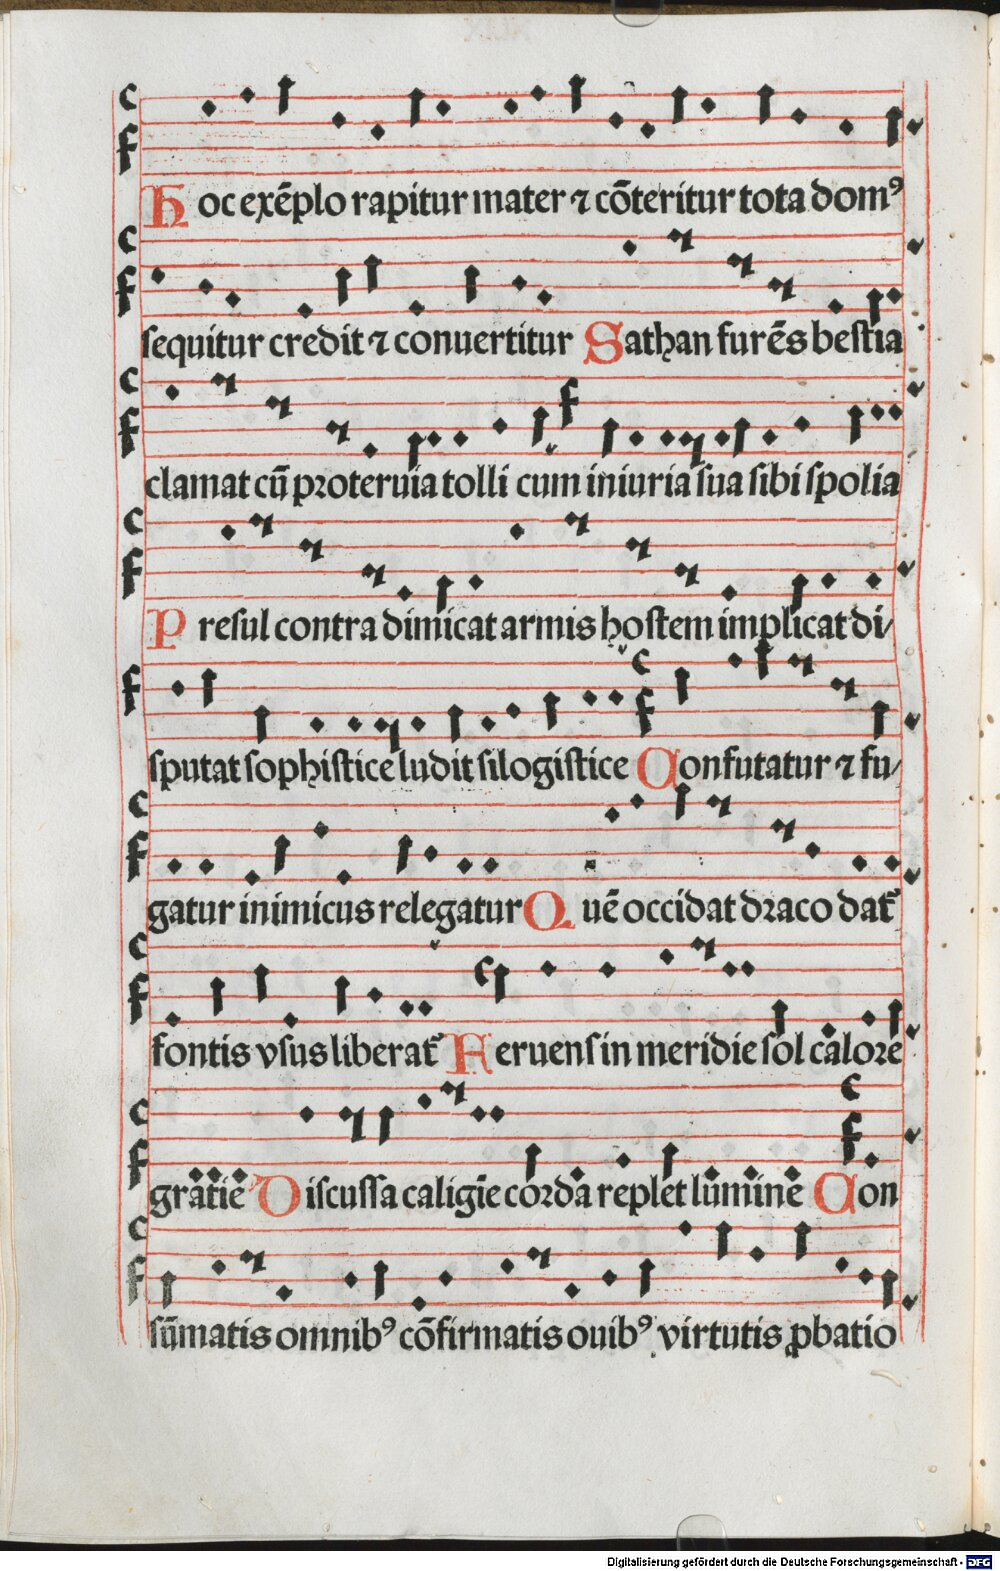 Hoc exẽplo rapitur mater ⁊ cõteritur tota domꝰ
sequitur credit ⁊ conuertitur Sathan furẽs bestia
clamat cũ proteruia tolli cum iniuria sua sibi spolia
Presul contra dimicat armis hostem implicat di/
sputat sophistice ludit silogistice Confutatur ⁊ fu/
gatur inimicus relegatur Quẽ occidat draco dat᷑
fontis vsus liberat᷑ Feruens in meridie sol calore
gratie Discussa caligĩe corda replet lumine Con
sũmatis omnibꝰ cõfirmatis ouibꝰ virtutis ꝓbatio
Digitalisierung gefördert durch die Deutsche Forschungsgemeinschaft - DFG